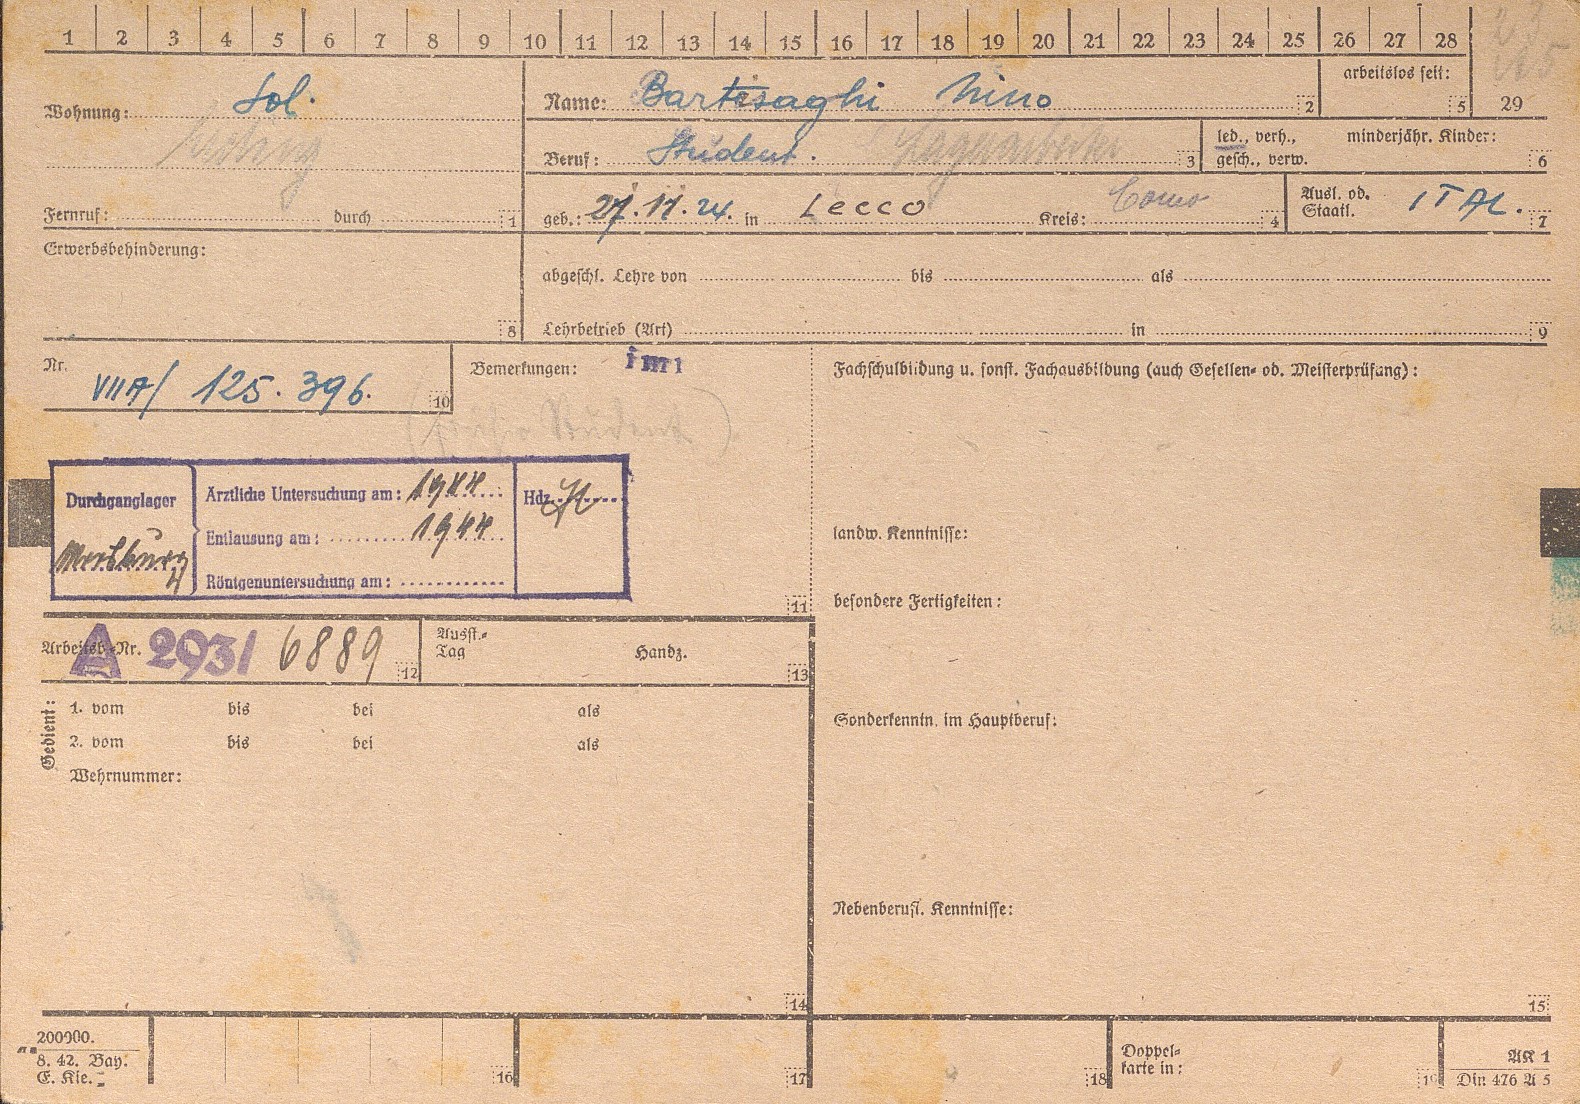 1 2 3 4 5 6 7 8 9 10 11 12 13 14 15 16 17 18 19 20 21 22 23 24 25 26 27 28 29
Wohnung: Sol.
Name: Bartesaghi Nino 2
arbeitslos seit: 5
Beruf: Student. 3
led., verh., gesch., verw.
minderjähr. Kinder: 6
Fernruf: durch 1
geb.: 27.11.24. in Lecco Kreis: Como 4
Ausl. od. Staatl. ITAL. 7
Erwerbsbehinderung: 8
abgeschl. Lehre von bis als
Lehrbetrieb (Art) in 9
Nr. VIIA/ 125.396. 10
Bemerkungen: imi
(früher Student)
Durchganglager
Ärztliche Untersuchung am: 1944
Hdz.
Entlausung am: 1944
Röntgenuntersuchung am:
11
Arbeitsb.-Nr. A 293/ 6889 12
Ausst.-
Tag Handz. 13
Gedient:
1. vom bis bei als
2. vom bis bei als
Wehrnummer:
14
Fachschulbildung u. sonst. Fachausbildung (auch Gesellen- od. Meisterprüfung):
landw. Kenntnisse:
besondere Fertigkeiten:
Sonderkenntn. im Hauptberuf:
Nebenberufl. Kenntnisse:
15
200000.
8. 42. Bay.
E. Kie.
16 17 18
Doppel-
karte in: 19
AK 1
Din 476 A 5